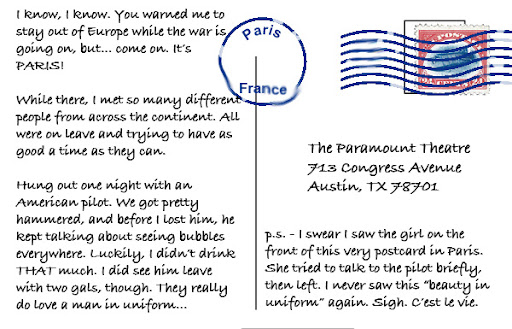 I know, I know. You warned me to
stay out of Europe while the war is
going on, but... come on. It's
PARIS!
While there, I met so many different
people from across the continent. All
were on leave and trying to have as
good a time as they can.
Hung out one night with an
American pilot. We got pretty
hammered, and before I lost him, he
kept talking about seeing bubbles
everywhere. Luckily, I didn't drink
THAT much. I did see him leave
with two gals, though. They really
do love a man in uniform...
Paris
France
The Paramount Theatre
713 Congress Avenue
Austin, TX 78701
p.s. - I swear I saw the girl on the
front of this very postcard in Paris.
She tried to talk to the pilot briefly,
then left. I never saw this "beauty in
uniform" again. Sigh. C'est le vie.